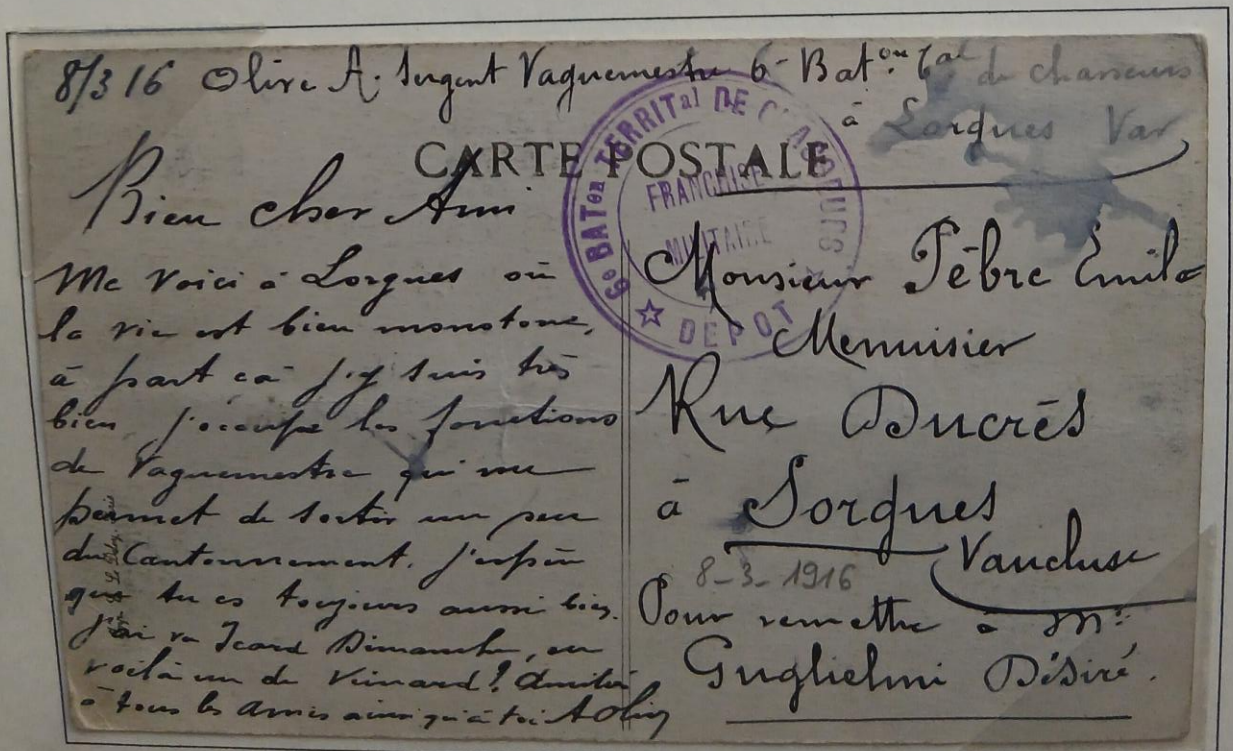 8/3 16 Olive A. Sergent Vaguemestre 6e Baton Tal de chasseurs
à Lorgues Var
CARTE POSTALE
6e BATon TERRITal DE CHASSEURS
FRANCHISE
MILITAIRE
DEPOT
Bien cher Ami
Me voici à Lorgues où
la vie est bien monotone,
à part ça j'y suis très
bien j'occupe les fonctions
de Vaguemestre qui me
permet de sortir un peu
du Cantonnement. j'espère
que tu es toujours aussi bien.
J'ai vu Icard Dimanche, en
voilà un de veinard! Amitiés
à tous les amis ainsi qu'à toi A Olive
Monsieur Pèbre Emile
Menuisier
Rue Ducrès
à Sorgues
Vaucluse
8-3-1916
Pour remettre à Mr
Guglielmi Désiré.